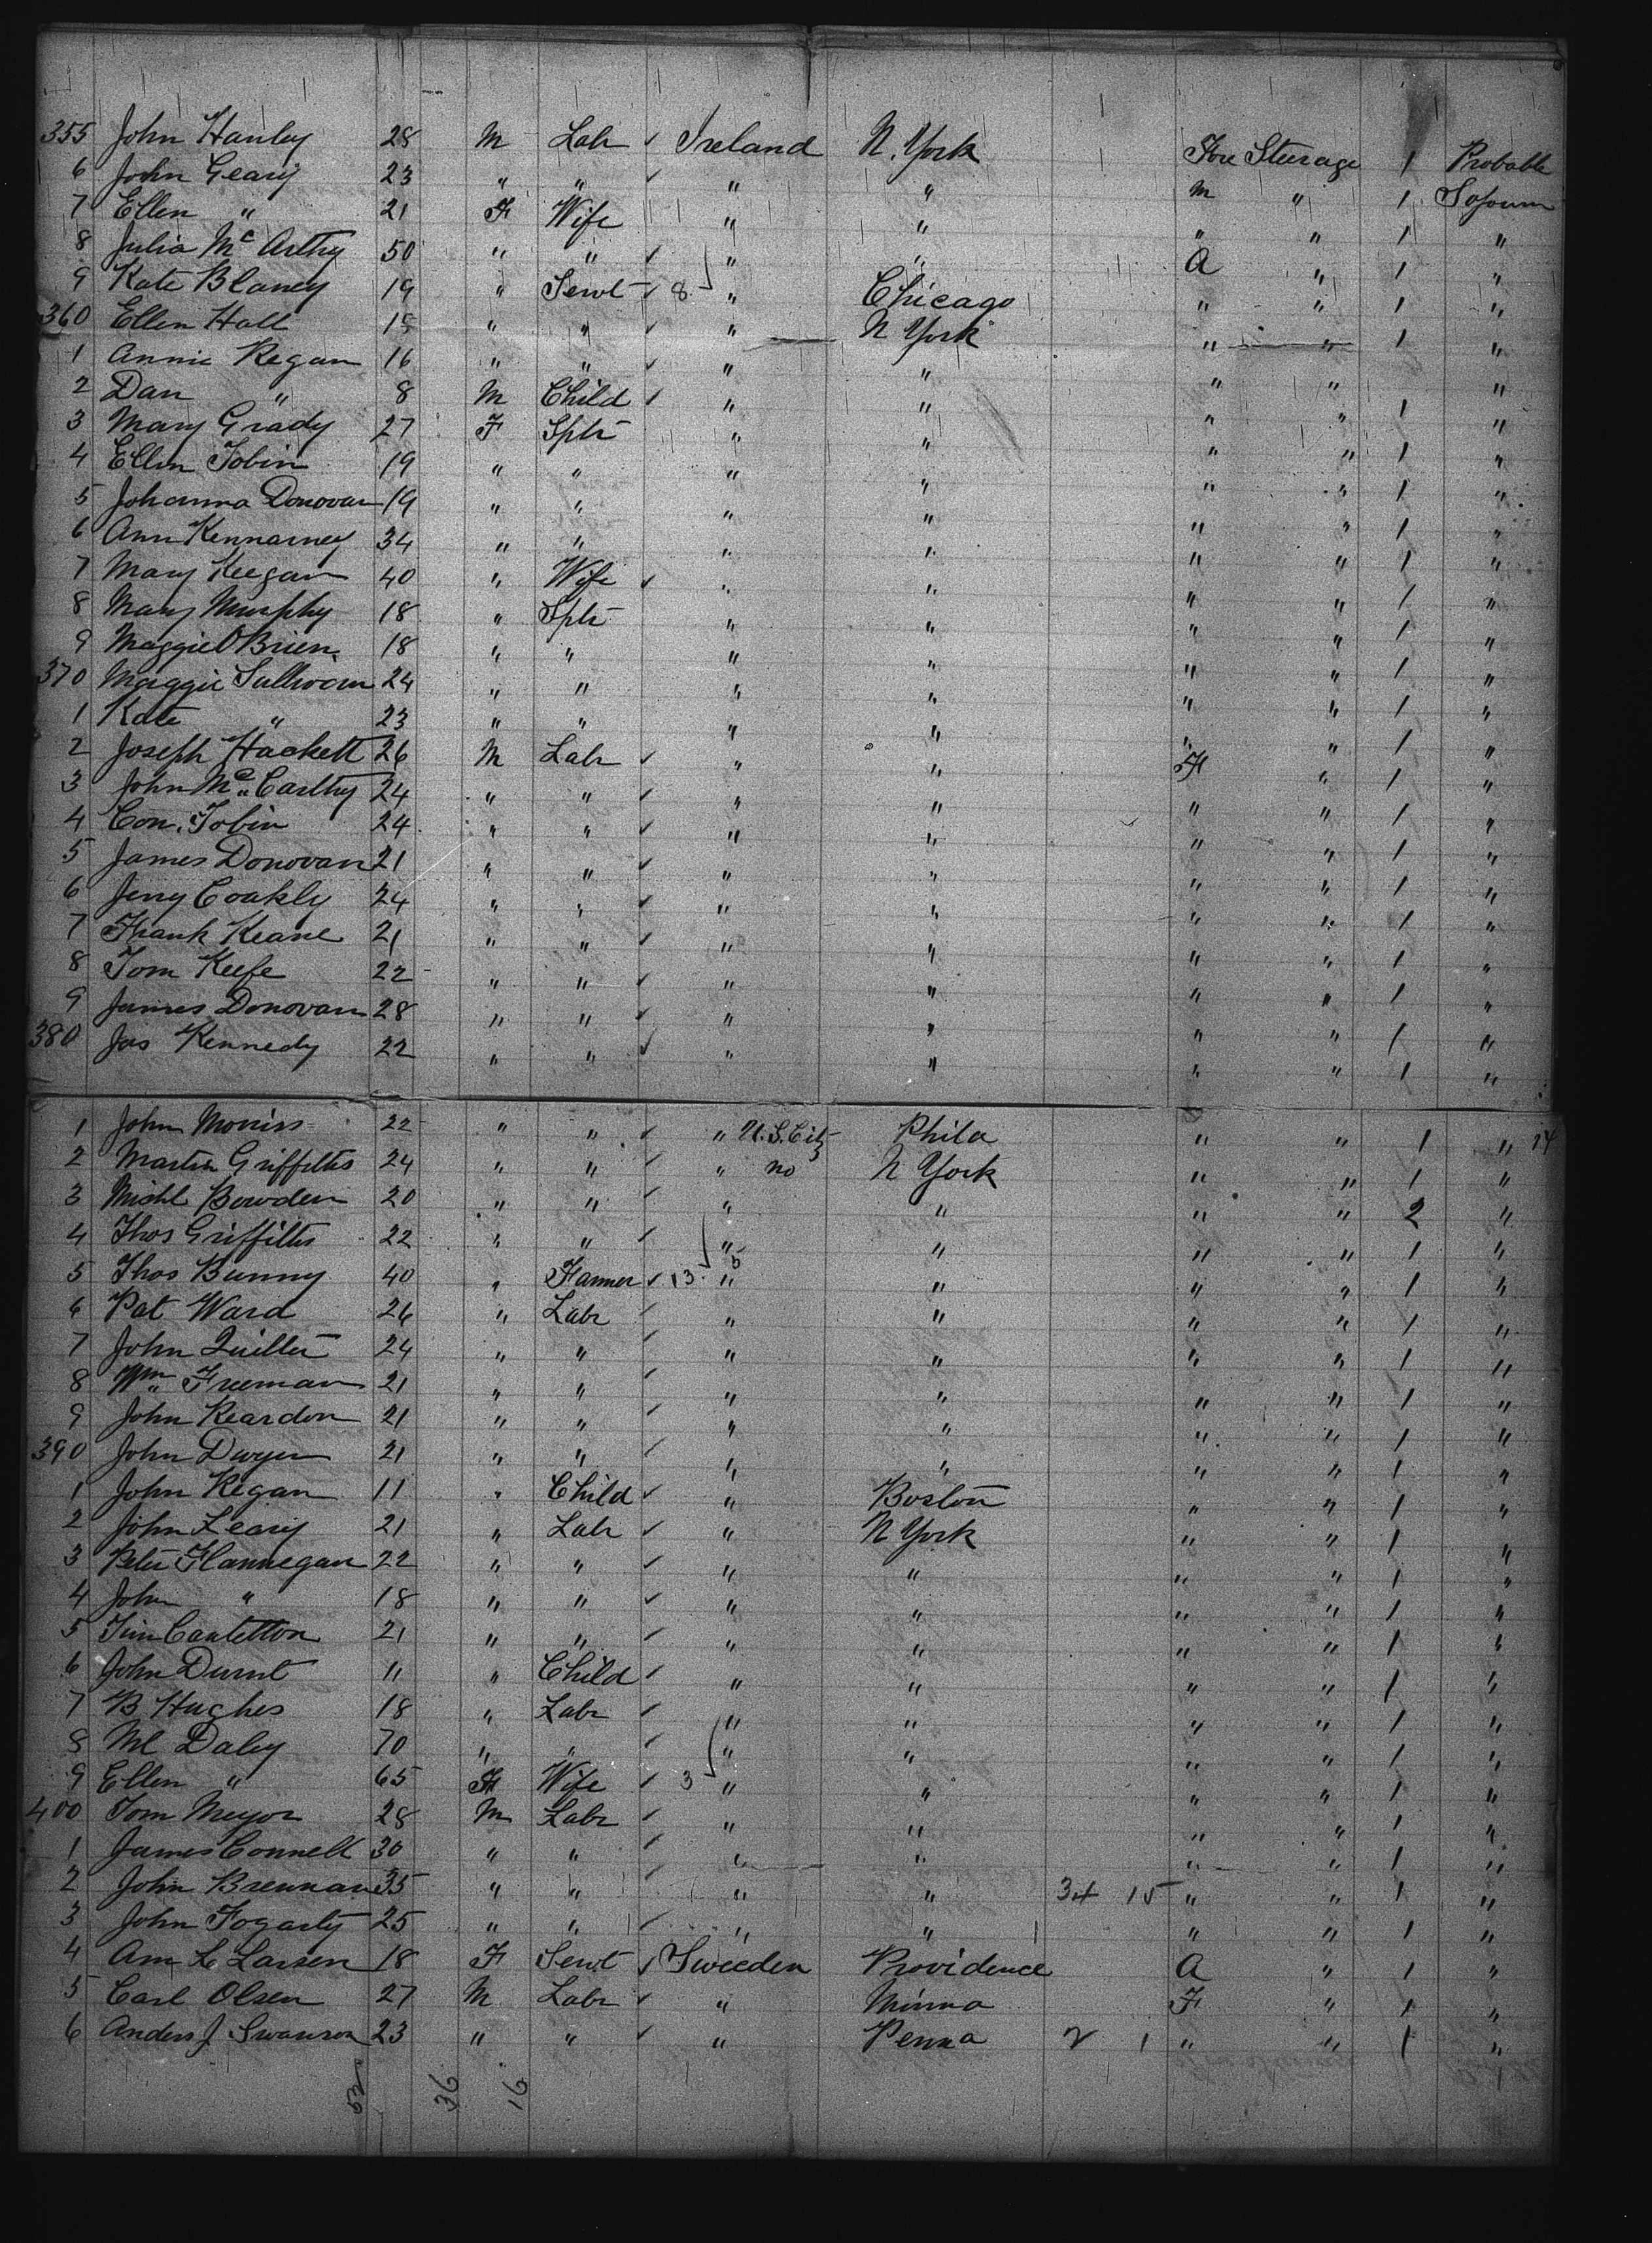 355 John Hanley 28 M Labr ✓ Ireland N. York Fore Steerage 1 Probable
6 John Geary 23 " " ✓ " " M " 1 Sojourn
7 Ellen " 21 F Wife " " " " 1 "
8 Julia Mc Arthy 50 " " ✓ " " A " 1 "
9 Kate Blaney 19 " Servt ✓ 8 " Chicago " " 1 "
360 Ellen Hall 15 " " ✓ " N York " " 1 "
1 Annie Regan 16 " " ✓ " " " " "
2 Dan " 8 M Child ✓ " " " " 1 "
3 Mary Grady 27 F Sptr " " " " 1 "
4 Ellen Tobin 19 " " " " " " 1 "
5 Johanna Donovan 19 " " " " " " 1 "
6 Ann Kennarney 34 " " " " " " 1 "
7 Mary Keegan 40 " Wife ✓ " " " " 1 "
8 Mary Murphy 18 " Sptr " " " " 1 "
9 Maggie OBrien 18 " " " " " " 1 "
370 Maggie Sullivan 24 " " " " " " 1 "
1 Kate " 23 " " " " " " 1 "
2 Joseph Hackett 26 M Labr ✓ " " F " 1 "
3 John Mc Carthy 24 " " ✓ " " " " 1 "
4 Con. Tobin 24 " " ✓ " " " " 1 "
5 James Donovan 21 " " ✓ " " " " 1 "
6 Jerry Coakly 24 " " ✓ " " " " 1 "
7 Frank Keane 21 " " ✓ " " " " 1 "
8 Tom Keefe 22 " " ✓ " " " " 1 "
9 James Donovan 28 " " ✓ " " " " 1 "
380 Jas Kennedy 22 " " ✓ " " " " 1 "
1 John Morriss 22 " " ✓ " U.S. Citz Phila " " 1 "
2 Martin Griffiths 24 " " ✓ " no N York " " 1 "
3 Michl Bowden 20 " " ✓ " " " " 2 "
4 Thos Griffiths 22 " " ✓ " " " " 1 "
5 Thos Bunny 40 " Farmer ✓ 13 " " " " 1 "
6 Pat Ward 26 " Labr ✓ " " " " 1 "
7 John Quilter 24 " " ✓ " " " " 1 "
8 Wm Freeman 21 " " ✓ " " " " 1 "
9 John Reardon 21 " " ✓ " " " " 1 "
390 John Dwyer 21 " " ✓ " " " " 1 "
1 John Regan 11 " Child ✓ " Boston " " 1 "
2 John Leary 21 " Labr ✓ " N York " " 1 "
3 Peter Flannegan 22 " " ✓ " " " " 1 "
4 John " 18 " " ✓ " " " " 1 "
5 Tim 21 " " ✓ " " " " 1 "
6 John Durnt 11 " Child ✓ " " " " 1 "
7 B Hughes 18 " Labr ✓ " " " " 1 "
8 Ml Daley 70 " " ✓ " " " " 1 "
9 Ellen " 65 F Wife ✓ 3 " " " " 1 "
400 Tom Meyor 28 M Labr ✓ " " " " 1 "
1 James Connell 30 " " ✓ " " " " 1 "
2 John Brennan 35 " " ✓ " " 34 15 " " 1 "
3 John Fogarty 25 " " ✓ " " " " 1 "
4 Am L Larsen 18 F Servt ✓ Sweeden Providence A " 1 "
5 Carl Olsen 27 M Labr ✓ " Minna F " 1 "
6 Anders J. Swanson 23 " " ✓ " Penna 2 1 " " 1 "
52 36 16